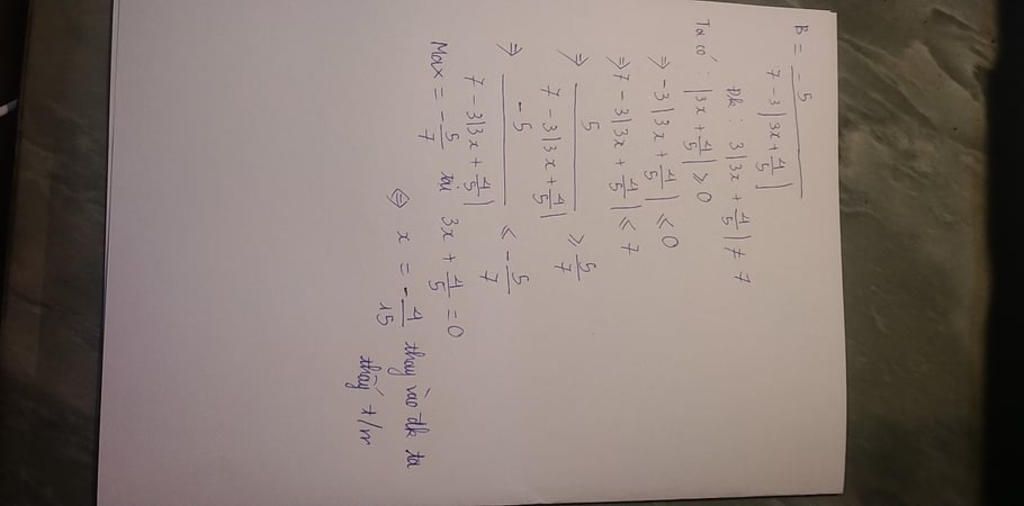 B = -5 / (7 - 3|3x + 1/5|)
Đk: 3|3x + 1/5| ≠ 7
Ta có: |3x + 1/5| ≥ 0
⇒ -3|3x + 1/5| ≤ 0
⇒ 7 - 3|3x + 1/5| ≤ 7
⇒ 5 / (7 - 3|3x + 1/5|) ≥ 5/7
⇒ -5 / (7 - 3|3x + 1/5|) ≤ -5/7
Max = -5/7 tại 3x + 1/5 = 0
⇔ x = -1/15 thay vào đk ta
thấy t/m